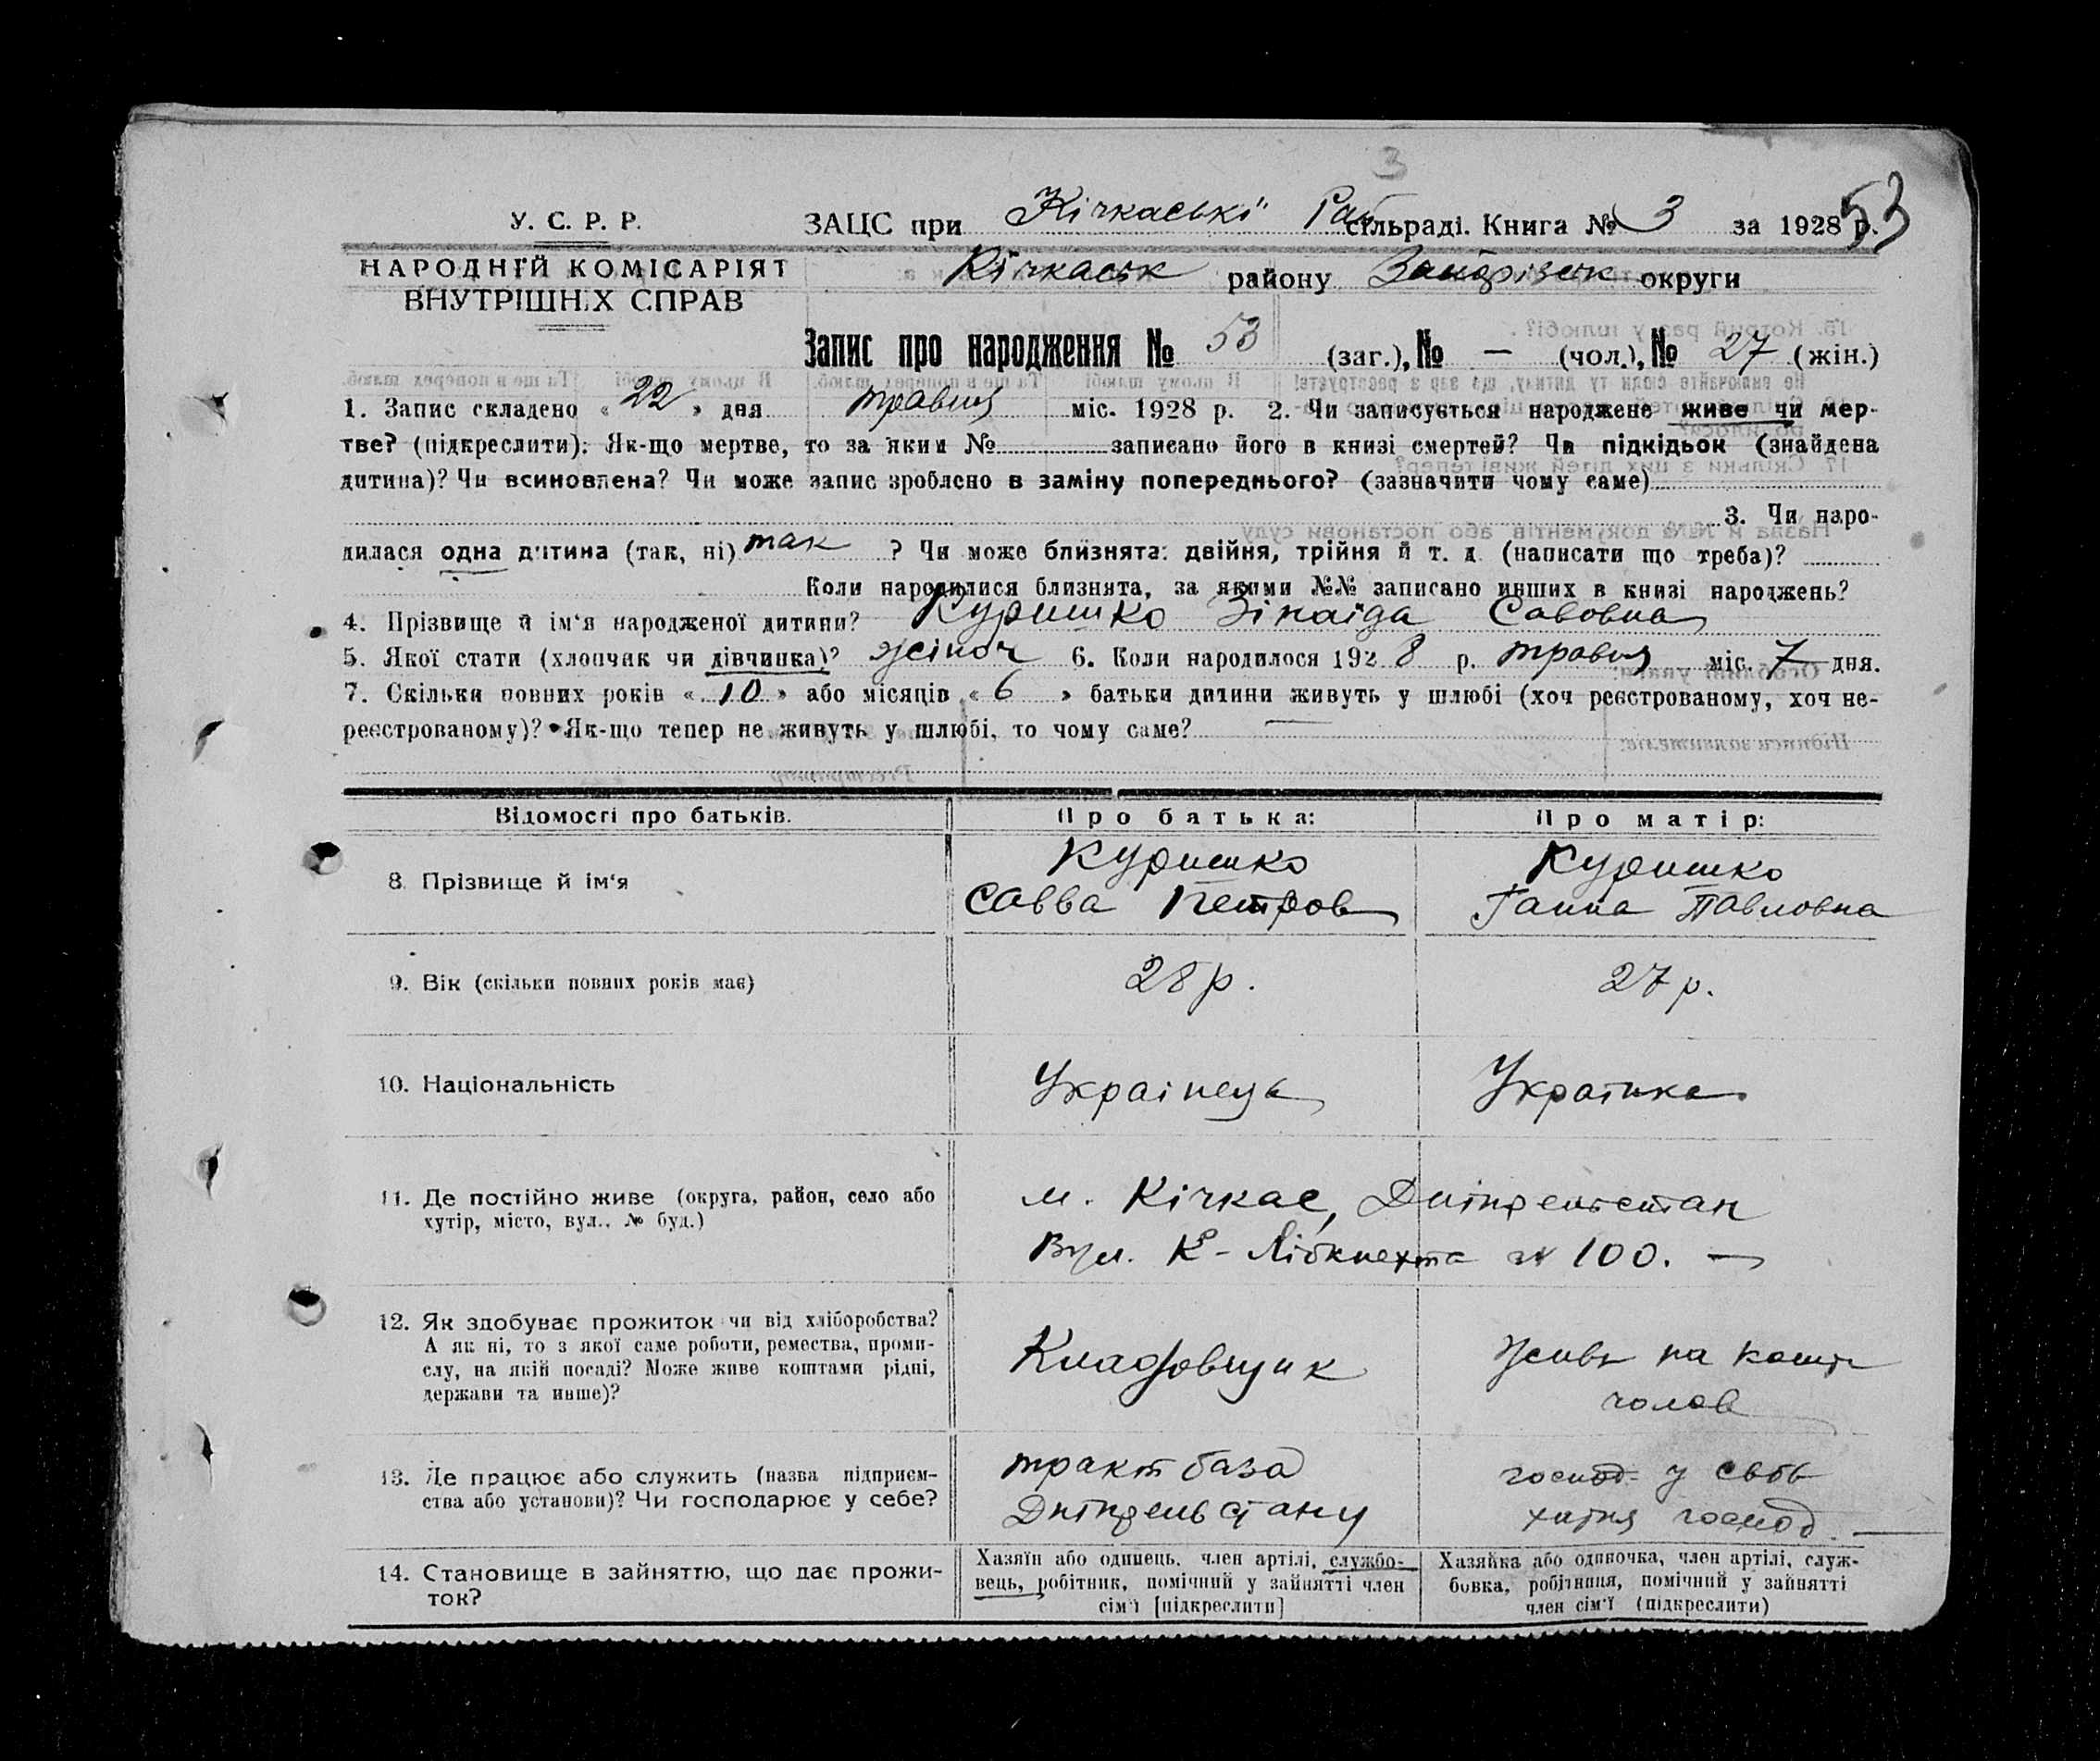 53
У. С. Р. Р.
ЗАЦС при Кічкаські Рай сільраді. Книга № 3 за 1928 р.
НАРОДНІЙ КОМІСАРІЯТ
ВНУТРІШНІХ СПРАВ
Кічкаськ району Запоріжск округи
Запис про народження № 53 (заг.), № — (чол.), № 27 (жін.)
1. Запис складено « 22 » дня травня міс. 1928 р. 2. Чи записується народжене живе чи мер-
тве? (підкреслити): Як-що мертве, то за яким № записано його в книзі смертей? Чи підкідьок (знайдена
дитина)? Чи всиновлена? Чи може запис зроблено в заміну попереднього? (зазначити чому саме)
3. Чи наро-
дилася одна дитина (так, ні) так ? Чи може близнята: двійня, трійня й т. д. (написати що треба)?
Коли народилися близнята, за якими №№ записано инших в книзі народжень?
4. Прізвище й ім‘я народженої дитини? Куришко Зінаїда Савовна
5. Якої стати (хлопчик чи дівчинка)? жіноч 6. Коли народилося 1928 р. травня міс. 7 дня.
7. Скільки повних років « 10 » або місяців « 6 » батьки дитини живуть у шлюбі (хоч реєстрованому, хоч не-
реєстрованому)? Як-що тепер не живуть у шлюбі, то чому саме? —
Відомості про батьків.
Про батька:
Про матір:
8. Прізвище й ім‘я
Куришко
Савва Петров
Куришко
Ганна Павловна
9. Вік (скільки повних років має)
28 р.
27 р.
10. Національність
Украінець
Українка
11. Де постійно живе (округа, район, село або
хутір, місто, вул., № буд.)
м. Кічкас, Дніпрельстан
Вул. К - Лібкнехта № 100. —
12. Як здобуває прожиток чи від хліборобства?
А як ні, то з якої саме роботи, ремества, проми-
слу, на якій посаді? Може живе коштами рідні,
держави та инше)?
Кладовщик
Живе на кошт
чолов
13. Де працює або служить (назва підприєм-
ства або установи)? Чи господарює у себе?
тракт база
Дніпрельстану
господ. у своє
хатня господ. —
14. Становище в зайняттю, що дає прожи-
ток?
Хазяїн або одинець, член артілі, службо-
вець, робітник, помічний у зайнятті член
сім‘ї [підкреслити]
Хазяйка або одиночка, член артілі, служ-
бовка, робітниця, помічний у зайнятті
член сім‘ї (підкреслити)